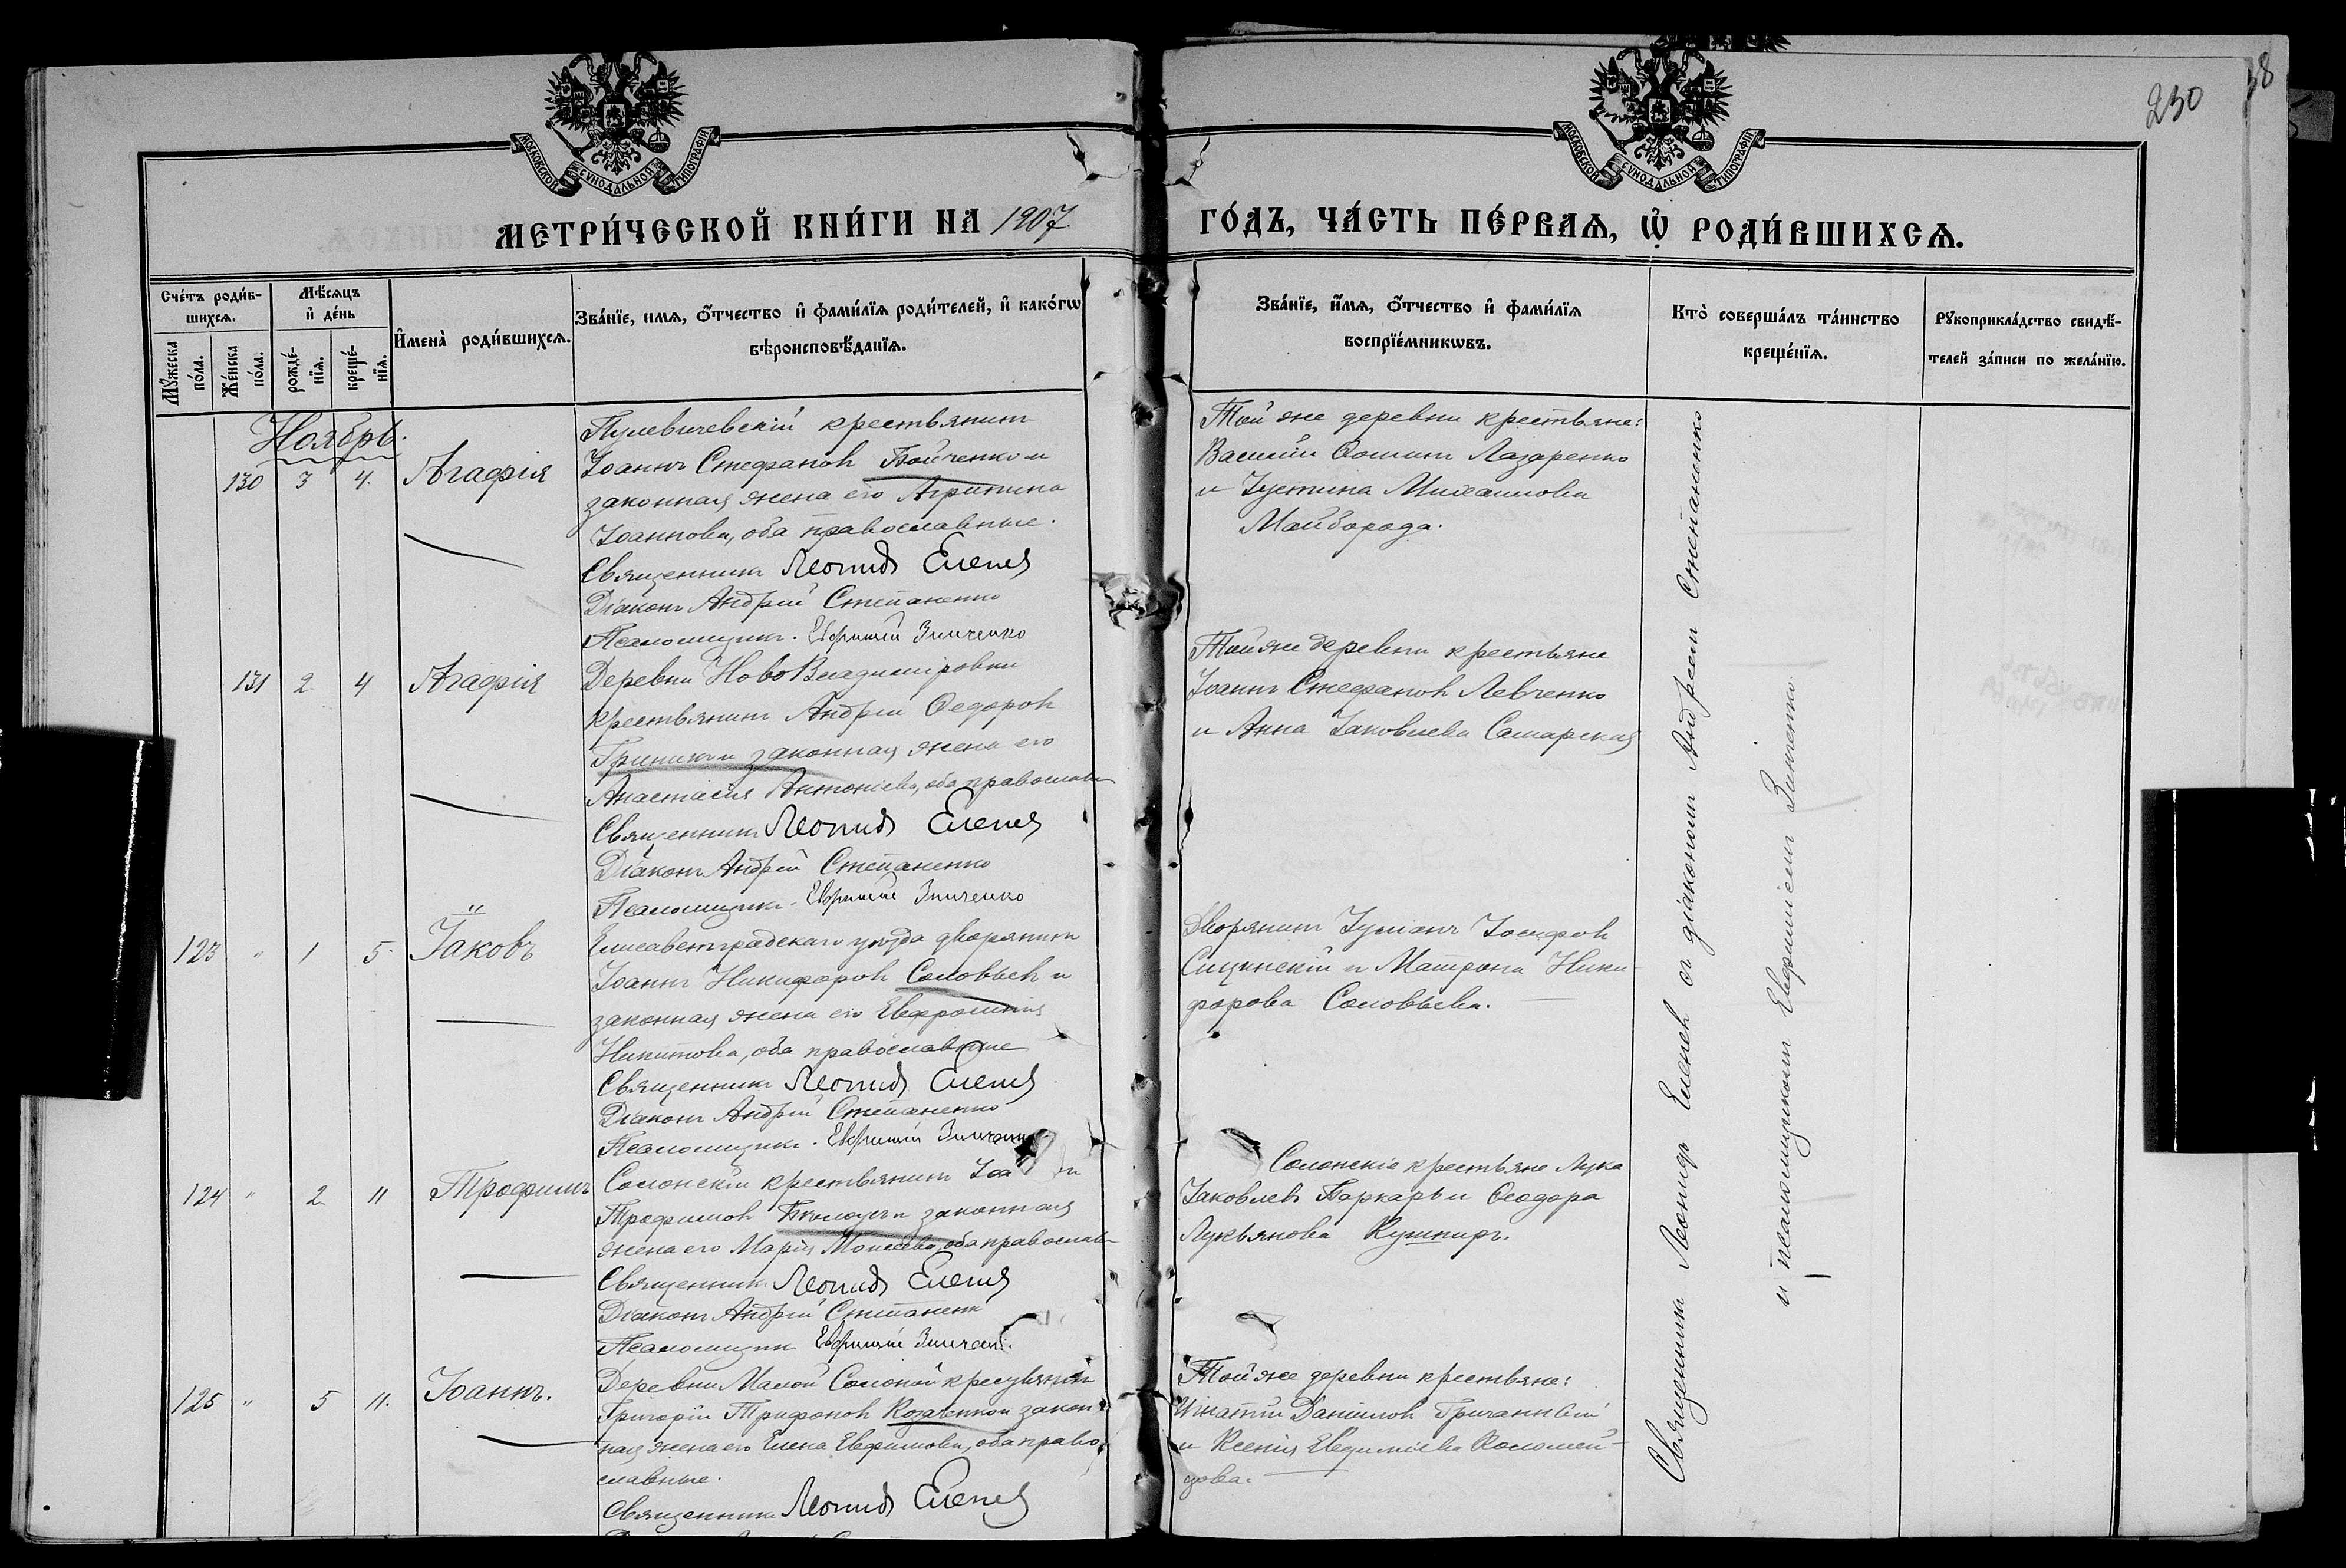 230
38
МОСКОВСКОЙ СѴНОДАЛЬНОЙ ТИПОГРАФІИ
МОСКОВСКОЙ СѴНОДАЛЬНОЙ ТИПОГРАФІИ
МЕТРИ́ЧЕСКОЙ КНИ́ГИ НА 1907
ГО́ДЪ, ЧА́СТЬ ПЕ́РВАѦ, Ѡ҆ РОДИ́ВШИХСѦ.
Сче́тъ роди́в-
шихсѧ.
Мꙋ́жеска
по́ла.
Же́нска
по́ла.
Мѣ́сѧцъ
и҆ де́нь
рожде́-
нїѧ.
креще́-
нїѧ.
И҆мена̀ роди́вшихсѧ.
Зва́нїе, имѧ, ѻ҆́тчество и҆ фами́лїѧ роди́телей, и҆ како́гѡ
вѣроисповѣ́данїѧ.
Зва́нїе, и҆́мѧ, ѻ҆́тчество и҆ фами́лїѧ
воспрїе́мникѡвъ.
Кто̀ соверша́лъ та́инство
креще́нїѧ.
Рꙋкоприкла́дство свидѣ́-
телей за́писи по жела́нїю.
Ноябрь.
130 3 4. Агафія
Пулевичевскій крестьянинъ
Іоаннъ Стефановъ Бойченко и
законная жена его Агрипина
Іоаннова, оба православные.
Священникъ Леонидъ Еленев
Діаконъ Андрей Степаненко
Псаломщикъ. Евфимій Зинченко
Той же деревни крестьяне:
Василій Фоминъ Лазаренко
и Іустина Михаилова
Майборода.
131 2 4 Агафія
Деревни НовоВладиміровки
крестьянинъ Андрей Федоровъ
законная жена его
Анастасія Антоніева, оба православн
Священникъ Леонидъ Еленев
Діаконъ Андрей Степаненко
Псаломщикъ. Евфимій Зинченко
Той же деревни крестьяне
Іоаннъ Стефановъ Левченко
и Анна Іаковлева Самарская
123 " 1 5 Іаковъ
Елисаветградскаго уѣзда дворянинъ
Іоаннъ Никифоровъ Соловьевъ и
законная жена его Евфросинія
Никитова, оба православные
Священникъ Леонидъ Еленев
Діаконъ Андрей Степаненко
Псаломщикъ. Евфимій Зинченко
Дворянинъ Іуліанъ Іосифовъ
Сицинскій и Матрона Ники-
форова Соловьева.
124 " 2 11 Трофимъ
Солонскій крестьянинъ
Трофимовъ законная
жена его Марія Моисеева, оба православн
Священникъ Леонидъ Еленев
Діаконъ Андрей Степаненк
Псаломщикъ Евфимій Зинченк.
Солонскіе крестьяне Лука
Іаковлевъ Паркарь и Феодора
Лукьянова Кушниръ.
125 " 5 11. Іоаннъ.
Деревни Малой Солоной крестьянинъ
Григорій Трифоновъ Козаченко и закон-
ная жена его Елена Евфимова, оба право-
славные.
Священникъ Леонидъ Еленев
Той же деревни крестьяне:
Игнатій Даніиловъ Гричанный
и Ксенія Евдиміева Коломей-
цова.
Священникъ Леонидъ Еленевъ съ діакономъ Андреемъ Степаненко
и псаломщикомъ Евфиміемъ Зинченко.